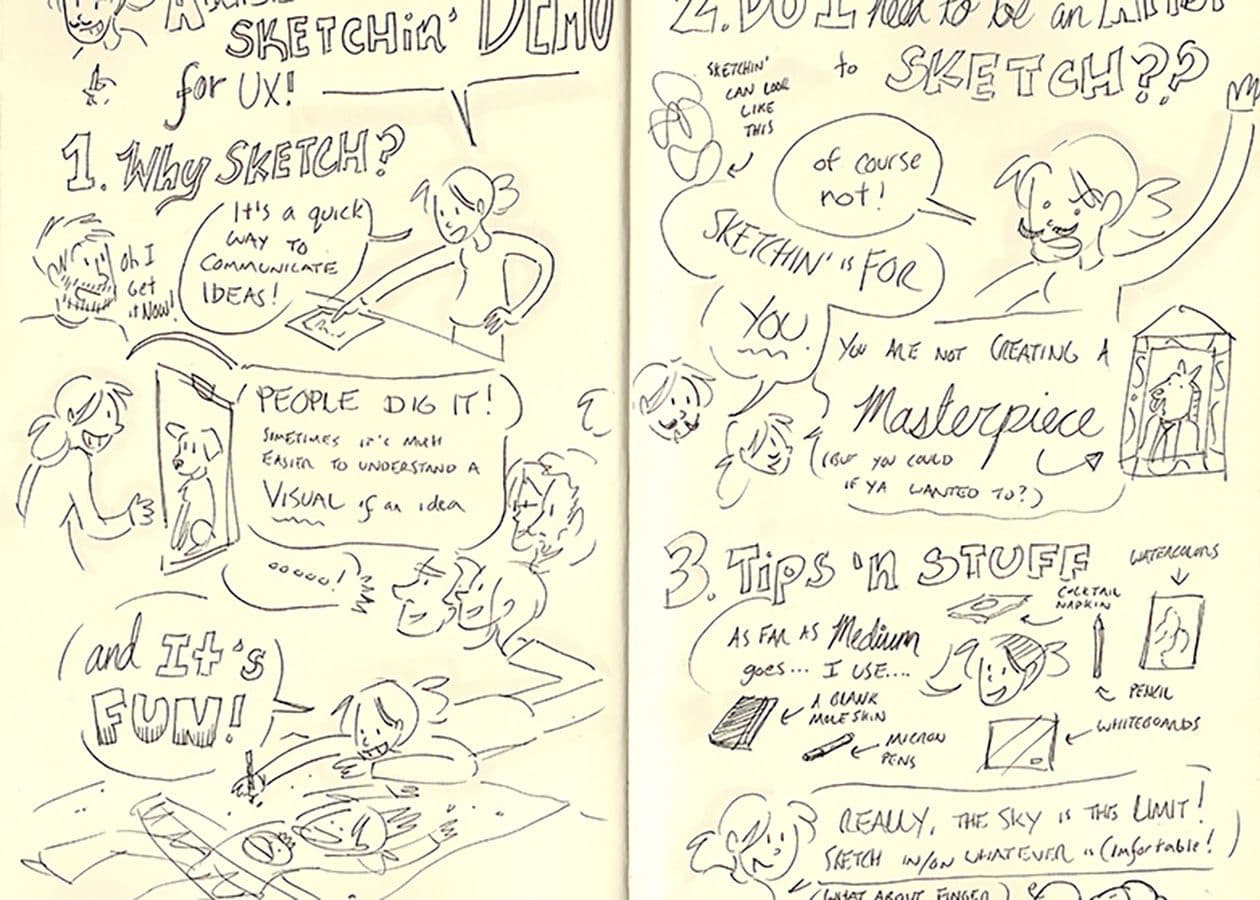 SKETCHIN' DEMO
for UX!
1. Why SKETCH?
It's a quick
WAY TO
COMMUNICATE
IDEAS!
Oh I
Get
it Now!
PEOPLE DIG IT!
SOMETIMES IT'S MUCH
EASIER TO UNDERSTAND A
VISUAL of an idea
ooooo!
and It's
FUN!
2. DO I need to be an ARTIST
to SKETCH??
SKETCHIN'
CAN LOOK
LIKE
THIS
of course
not!
SKETCHIN' is FOR
YOU.
YOU ARE NOT CREATING A
Masterpiece
(BUT YOU COULD
IF YA WANTED TO?)
3. Tips 'n STUFF
WATERCOLORS
COCKTAIL
NAPKIN
AS FAR AS Medium
goes... I USE....
PENCIL
A BLANK
MOLESKIN
WHITEBOARDS
MICRON
PENS
REALLY, THE SKY IS THE LIMIT!
SKETCH IN/ON WHATEVER is Comfortable!
(WHAT ABOUT FINGER